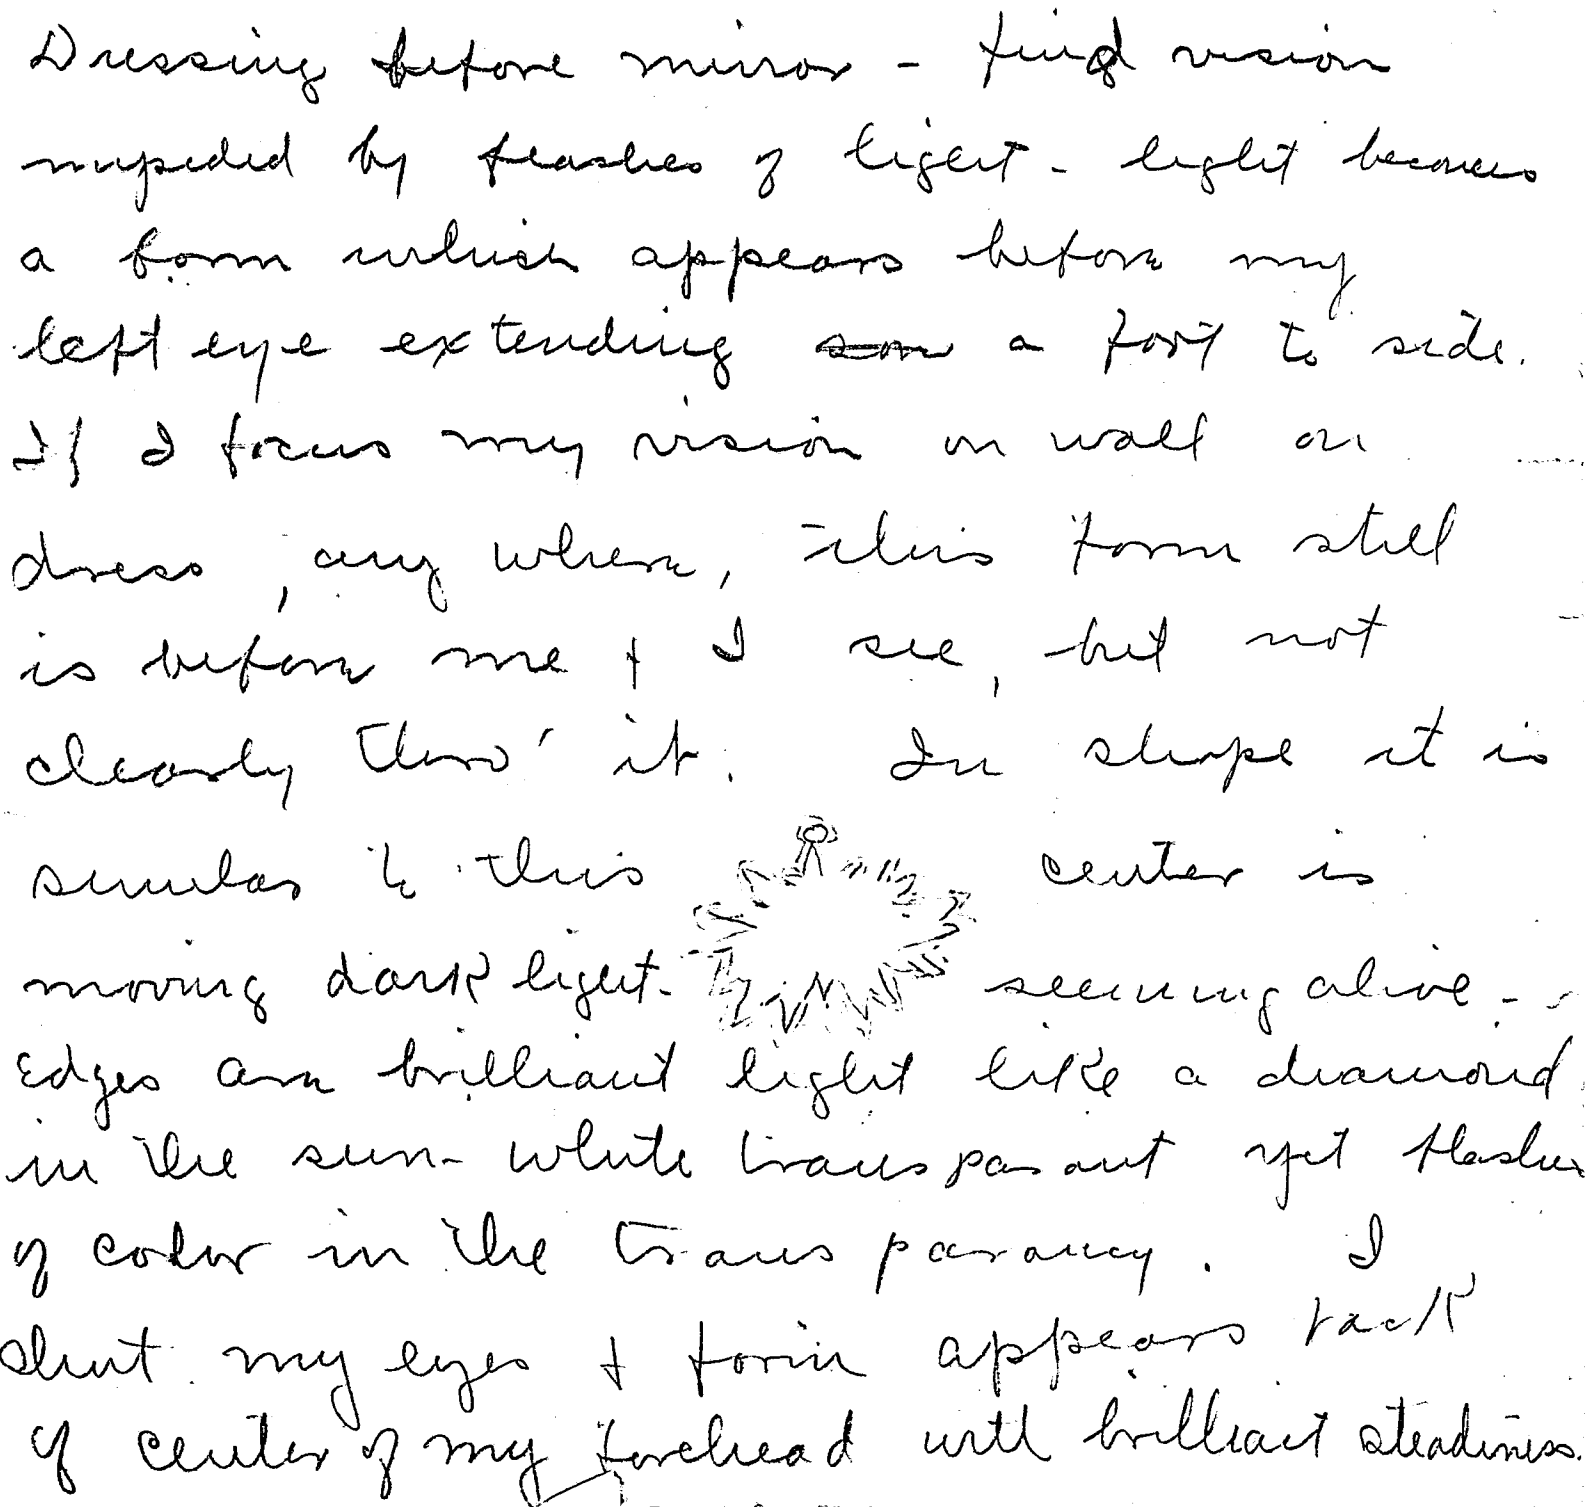 Dressing before mirror - find vision
impeded by flashes of light - light becomes
a form which appears before my
left eye extending som a foot to side.
If I focus my vision on wall on
dress, any where, this form still
is before me + I see, but not
clearly thro' it. In shape it is
similar to this center is
moving dark light - seeming alive -
Edges are brilliant light like a diamond
in the sun - white transparant yet flashes
of color in the transparancy. I
shut my eyes + form appears back
of center of my forehead with brilliant steadiness.